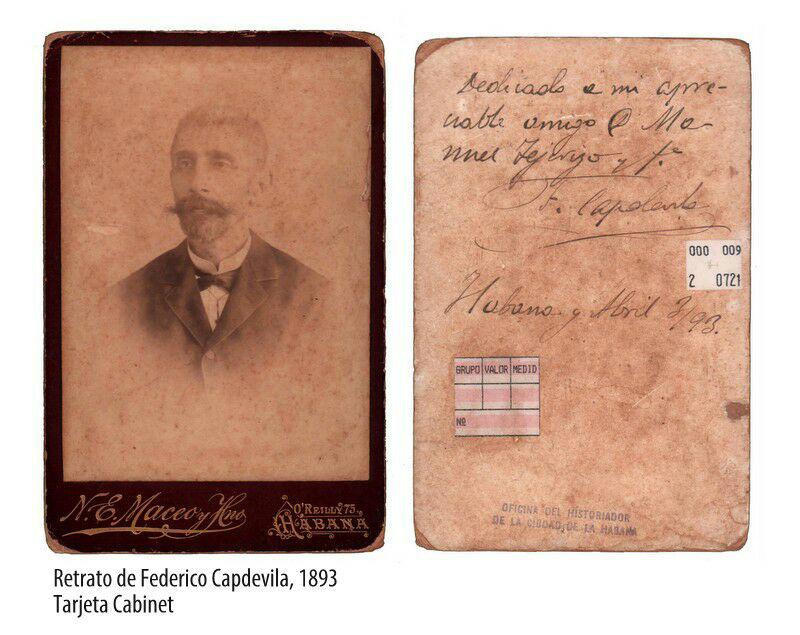 N. E. Maceo y Hno
O'REILLY 75.
HABANA
Dedicado a mi apre-
ciable amigo D Ma-
nuel
F. Capdevila
Habana y Abril 2/93.
000 009
2 0721
GRUPO VALOR MEDID
Nº
OFICINA DEL HISTORIADOR
DE LA CIUDAD DE LA HABANA
Retrato de Federico Capdevila, 1893
Tarjeta Cabinet